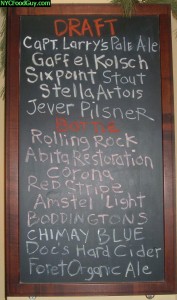 NYCFoodGuy.com
DRAFT
Capt. Larry's Pale Ale
Gaffel Kolsch
Sixpoint Stout
Stella Artois
Jever Pilsner
Bottle
Rolling Rock
Abita Restoration
Corona
Red Stripe
Amstel Light
BODDINGTONS
CHIMAY BLUE
Doc's Hard Cider
Foret Organic Ale